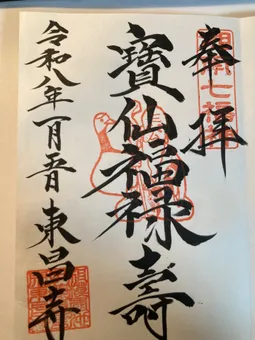 奉拝
寶仙福禄壽
令和八年一月吾日
東昌寺